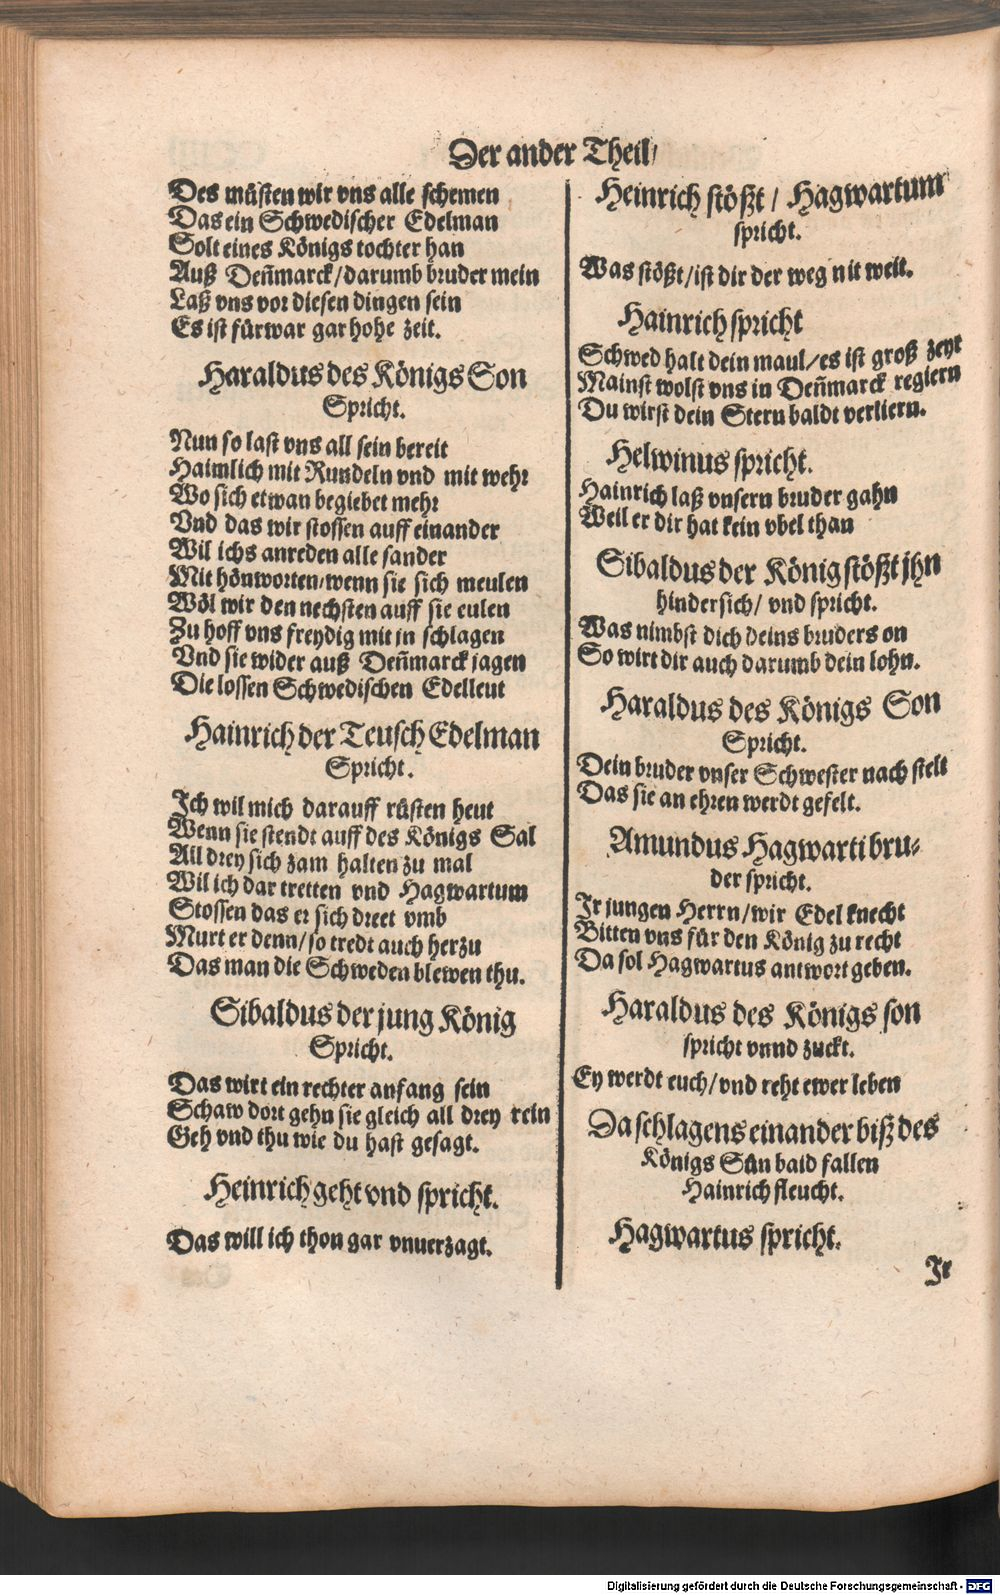 Der ander Theil/
Des müsten wir vns alle schemen
Das ein Schwedischer Edelman
Solt eines Königs tochter han
Auß Deñmarck/darumb bruder mein
Laß vns vor diesen dingen sein
Es ist fürwar gar hohe zeit.
Haraldus des Königs Son
Spricht.
Nun so last vns all sein bereit
Haimlich mit Rundeln vnd mit wehr
Wo sich etwan begiebet mehr
Vnd das wir stossen auff einander
Wil ichs anreden alle sander
Mit hönworten/wenn sie sich meulen
Wöl wir den nechsten auff sie eulen
Zu hoff vns freydig mit in schlagen
Vnd sie wider auß Deñmarck jagen
Die lossen Schwedischen Edelleut
Hainrich der Teusch Edelman
Spricht.
Ich wil mich darauff rüsten heut
Wenn sie stendt auff des Königs Sal
All drey sich zam halten zu mal
Wil ich dar tretten vnd Hagwartum
Stossen das er sich dreet vmb
Murt er denn/so tredt auch herzu
Das man die Schweden blewen thu.
Sibaldus der jung König
Spricht.
Das wirt ein rechter anfang sein
Schaw dort gehn sie gleich all drey rein
Geh vnd thu wie du hast gesagt.
Heinrich geht vnd spricht.
Das will ich thon gar vnuerzagt.
Heinrich stößt / Hagwartum
spricht.
Was stößt/ist dir der weg nit weit.
Hainrich spricht
Schwed halt dein maul/es ist groß zeyt
Mainst wolst vns in Deñmarck regiern
Du wirst dein Stern baldt verliern.
Helwinus spricht.
Hainrich laß vnsern bruder gahn
Weil er dir hat kein vbel than
Sibaldus der König stößt jhn
hindersich/ vnd spricht.
Was nimbst dich deins bruders on
So wirt dir auch darumb dein lohn.
Haraldus des Königs Son
Spricht.
Dein bruder vnser Schwester nach stelt
Das sie an ehren werdt gefelt.
Amundus Hagwarti bru-
der spricht.
Ir jungen Herrn/wir Edel knecht
Bitten vns für den König zu recht
Da sol Hagwartus antwort geben.
Haraldus des Königs son
spricht vnnd zuckt.
Ey werdt euch/vnd reht ewer leben
Da schlagens einander biß des
Königs Sün baid fallen
Hainrich fleucht.
Hagwartus spricht.
Ir
Digitalisierung gefördert durch die Deutsche Forschungsgemeinschaft - DFG